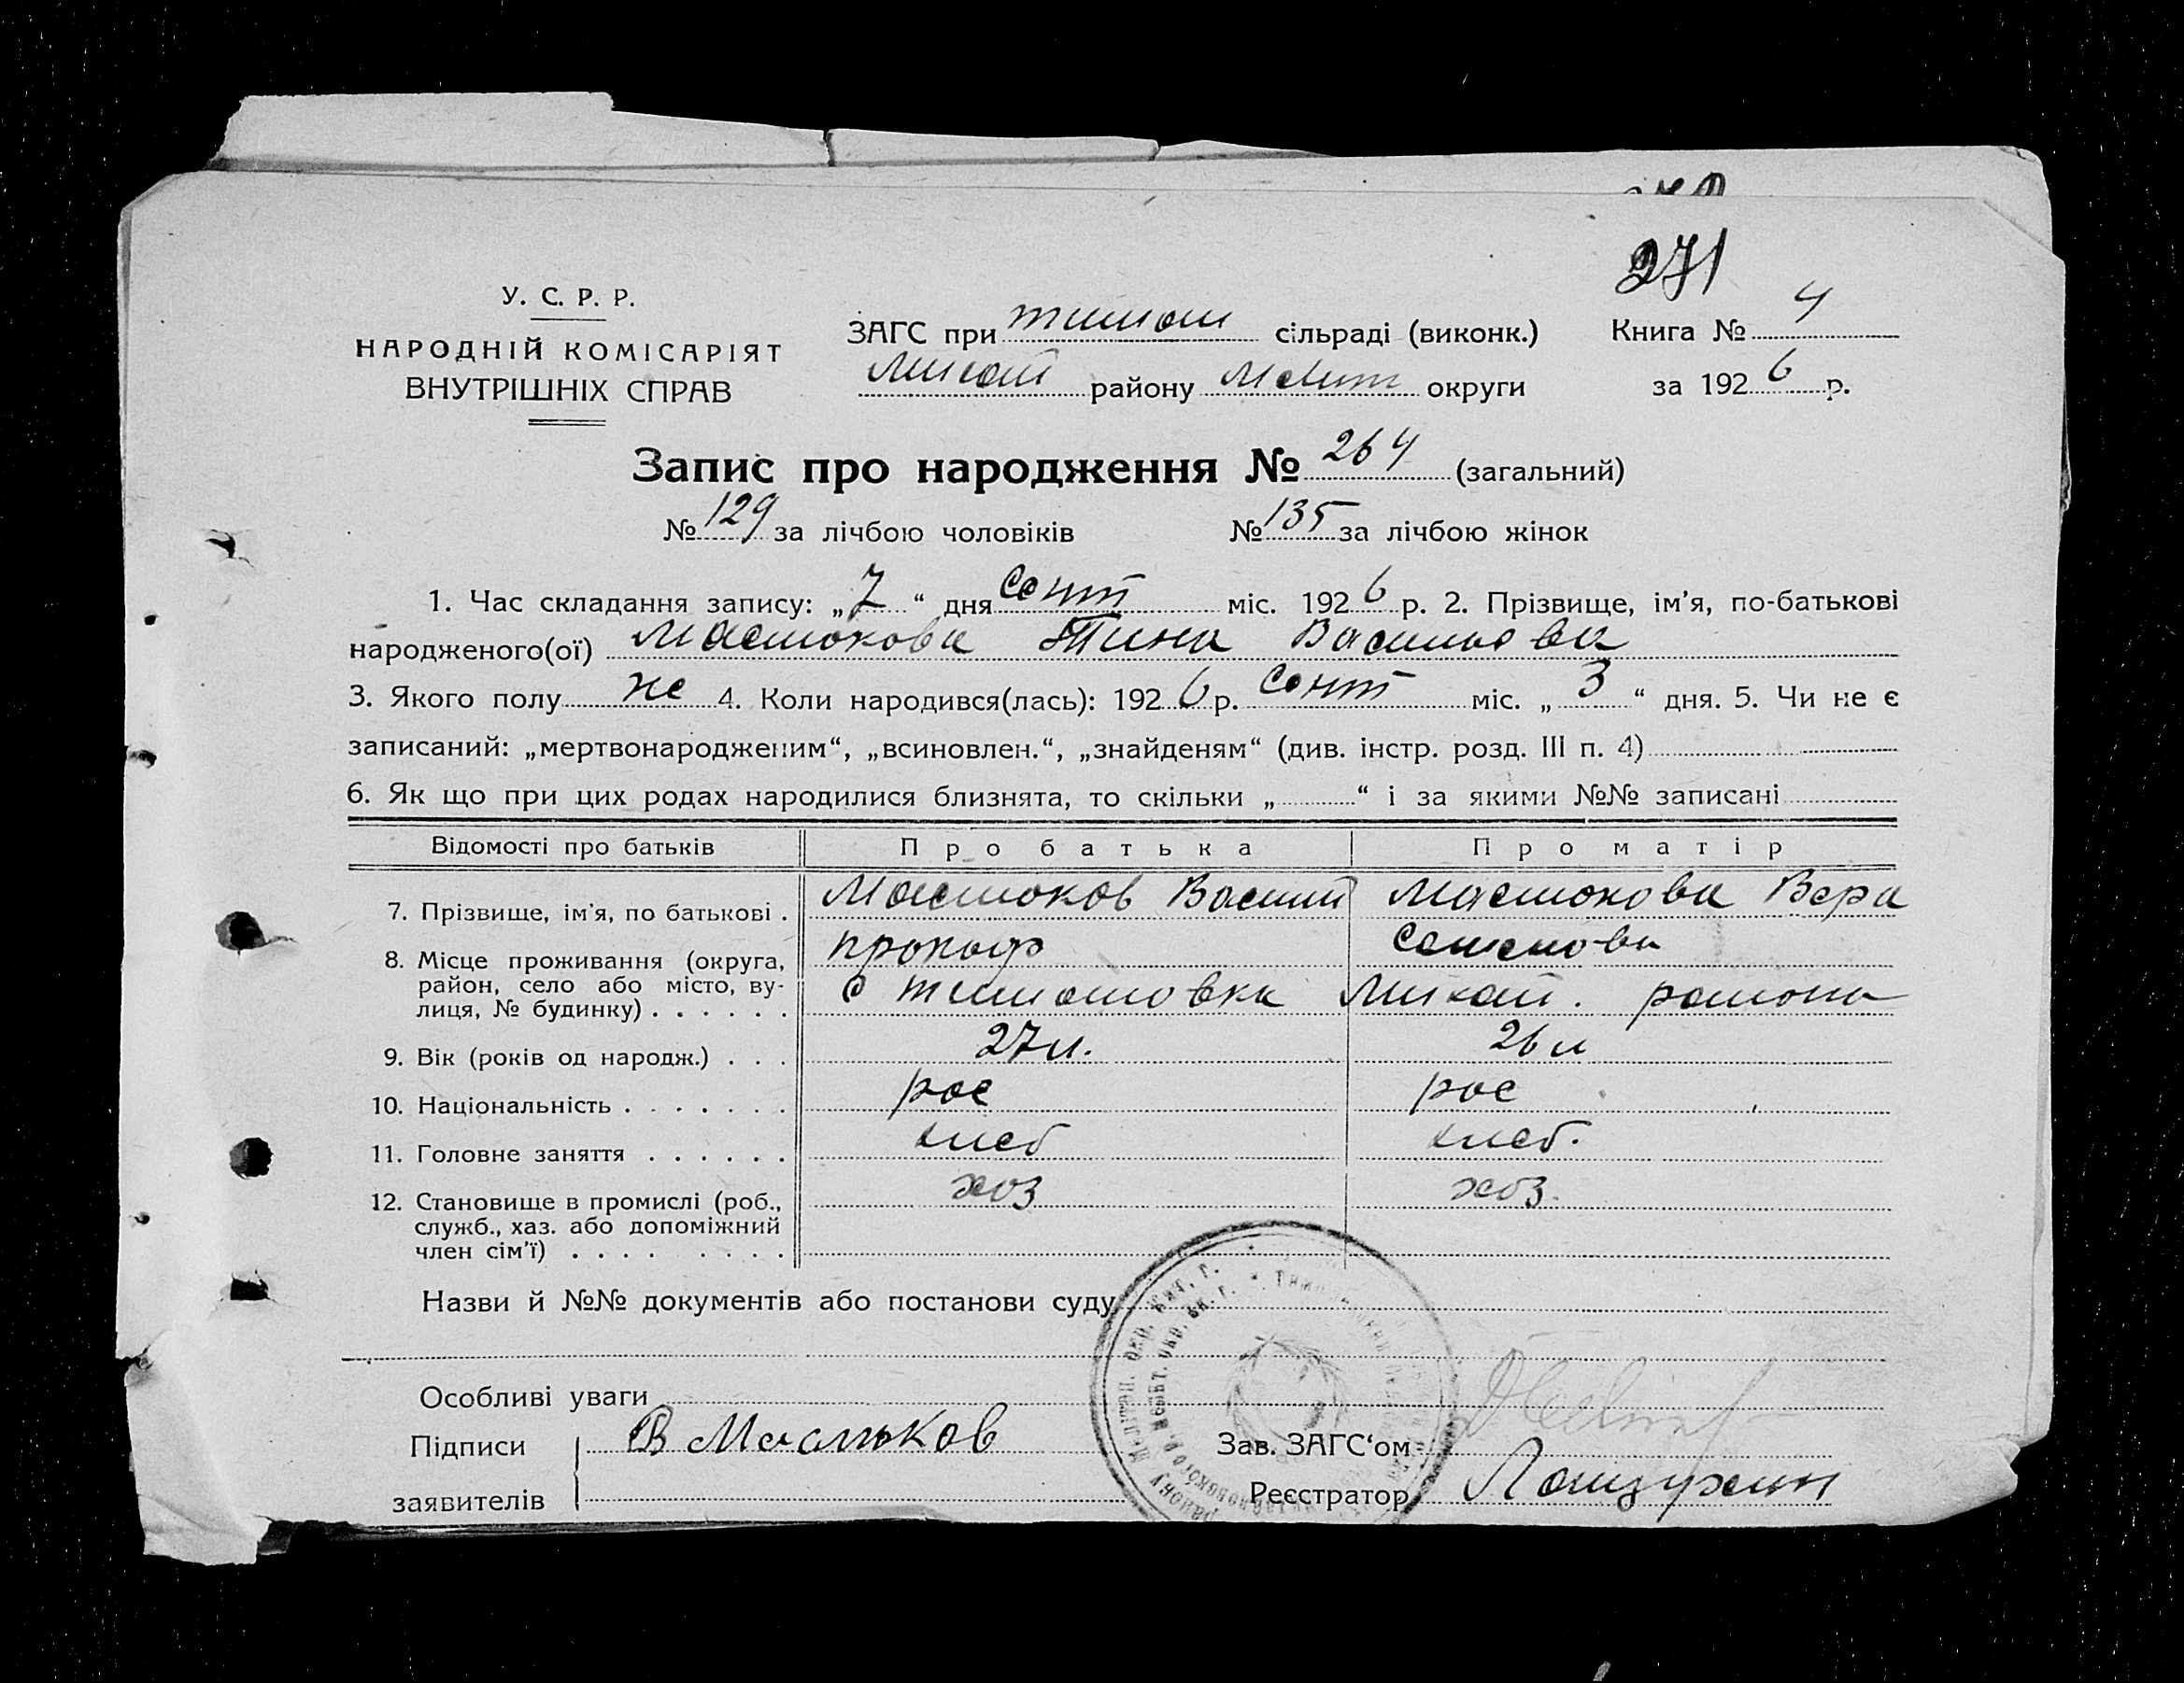 271
У. С. Р. Р.
НАРОДНІЙ КОМІСАРІЯТ
ВНУТРІШНІХ СПРАВ
ЗАГС при тимош сільраді (виконк.)
Михай району Мелит округи
Книга № 4
за 1926 р.
Запис про народження № 264 (загальний)
№ 129 за лічбою чоловіків № 135 за лічбою жінок
1. Час складання запису: „7“ дня Сент міс. 1926 р. 2. Прізвище, ім'я, по-батькові
народженого(ої) Маслюкова Тина Васильева
3. Якого полу же 4. Коли народився(лась): 1926 р. Сент міс. „3“ дня. 5. Чи не є
записаний: „мертвонародженим“, „всиновлен.“, „знайденям“ (див. інстр. розд. III п. 4)
6. Як що при цих родах народилися близнята, то скільки „ “ і за якими №№ записані
Відомості про батьків Про батька Про матір
7. Прізвище, ім'я, по батькові . Маслюков Василий Маслюкова Вера
прокоф Семенова
8. Місце проживання (округа, район, село або місто, вулиця, № будинку) . . . . . . С тимошовка Михай. района
9. Вік (років од народж.) . . . 27 л. 26 л
10. Національність . . . . . . . рос рос
11. Головне заняття . . . . . . хлеб хлеб.
12. Становище в промислі (роб., служб., хаз. або допоміжний член сім'ї) . . . . . . . . хоз хоз.
Назви й №№ документів або постанови суду
Особливі уваги
Підписи В Маслюков Зав. ЗАГС‘ом
заявителів Реєстратор